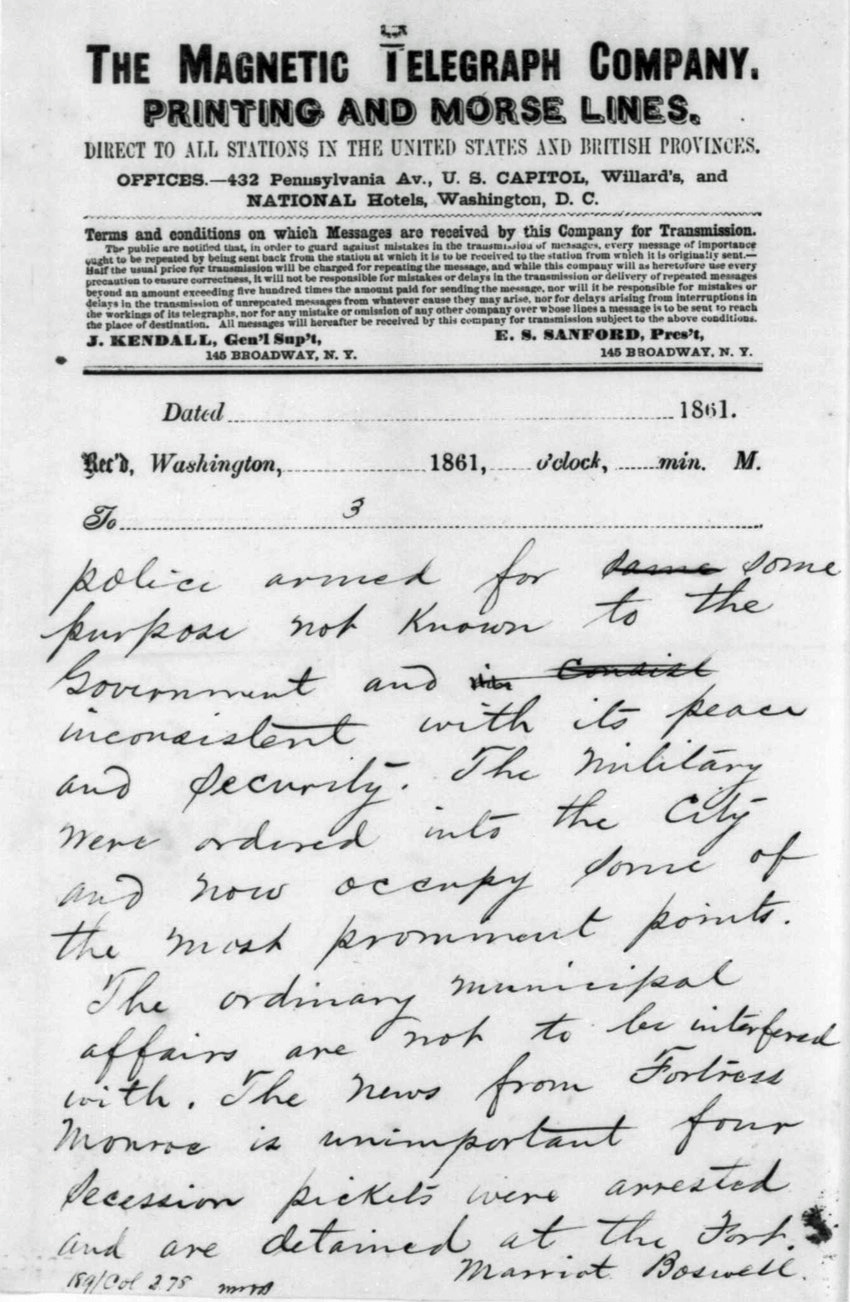 THE MAGNETIC TELEGRAPH COMPANY.
PRINTING AND MORSE LINES.
DIRECT TO ALL STATIONS IN THE UNITED STATES AND BRITISH PROVINCES.
OFFICES.—432 Pennsylvania Av., U. S. CAPITOL, Willard's, and
NATIONAL Hotels, Washington, D. C.
Terms and conditions on which Messages are received by this Company for Transmission.
The public are notified that, in order to guard against mistakes in the transmission of messages, every message of importance
ought to be repeated by being sent back from the station at which it is to be received to the station from which it is originally sent.—
Half the usual price for transmission will be charged for repeating the message, and while this company will as heretofore use every
precaution to ensure correctness, it will not be responsible for mistakes or delays in the transmission or delivery of repeated messages
beyond an amount exceeding five hundred times the amount paid for sending the message, nor will it be responsible for mistakes or
delays in the transmission of unrepeated messages from whatever cause they may arise, nor for delays arising from interruptions in
the workings of its telegraphs, nor for any mistake or omission of any other company over whose lines a message is to be sent to reach
the place of destination. All messages will hereafter be received by this company for transmission subject to the above conditions.
J. KENDALL, Gen'l Sup't, E. S. SANFORD, Pres't,
145 BROADWAY, N. Y. 145 BROADWAY, N. Y.
Dated 1861.
Rec'd, Washington, 1861, o'clock, min. M.
To 3
police armed for same some
purpose not known to the
Government and in consist
inconsistent with its peace
and security. The Military
were ordered into the City
and now occupy some of
the most prominent points.
The ordinary municipal
affairs are not to be interfered
with. The news from Fortress
Monroe is unimportant four
Secession pickets were arrested
and are detained at the Fort.
Marriot Boswell.
189/Col 275